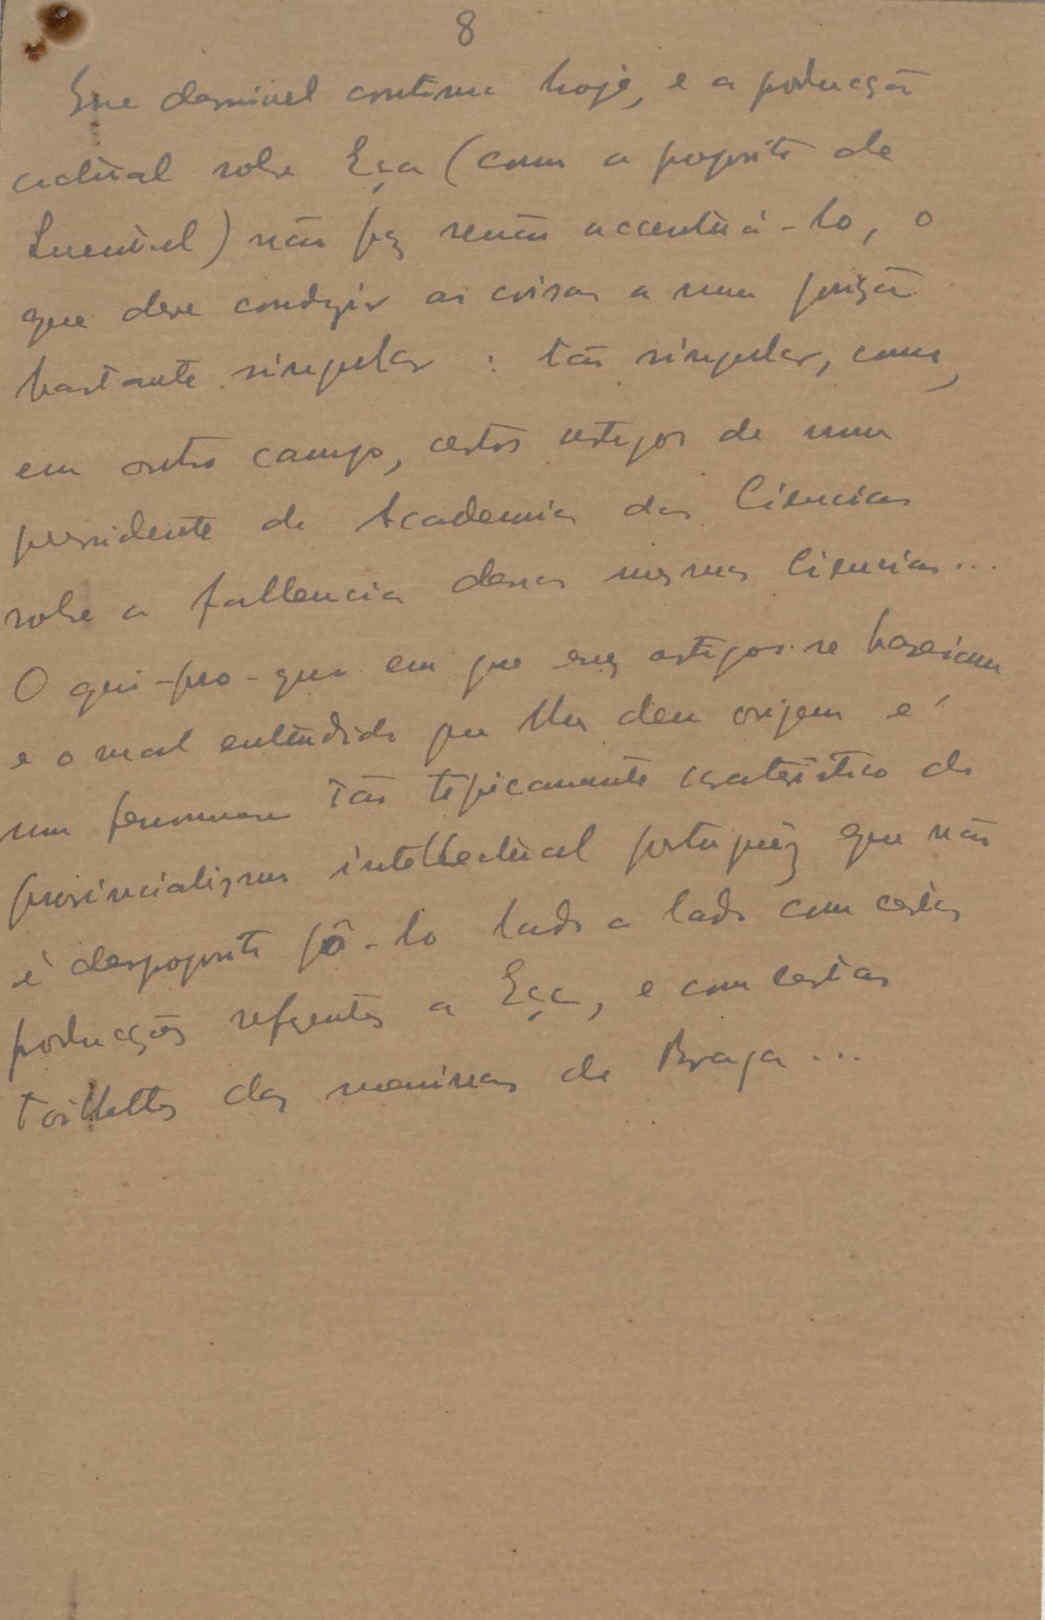 8
Esse desnivel continua hoje, e a producção
actual sobre Eça (com a proposito de
) não fez senão accentuá-lo, o
que deve conduzir as coisas a uma posição
bastante singular: tão singular, como,
em outro campo, certos artigos de um
presidente da Academia das Ciencias
sobre a fallencia dessas mesmas Ciencias...
O qui-pro-quo em que esses artigos se baseiam
e o mal entendido que lhes deu origem é
um fenomeno tão tipicamente caraterístico do
provincialismo intellectual português que não
é desproposito pô-lo lado a lado com certas
producções referentes a Eça, e com certas
toillettes das meninas de Braga...